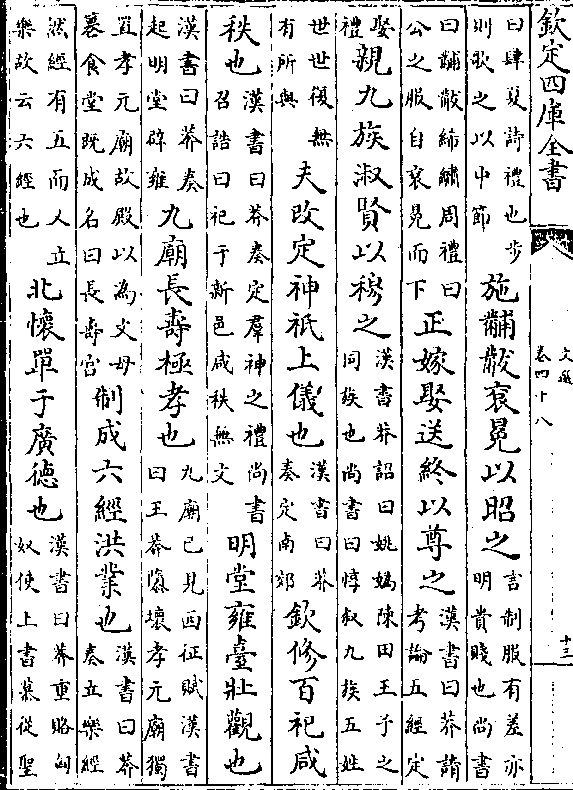 欽定四庫全書
文選
卷四十八
十三
曰肆夏詩禮也步
則歌之以中節
施黼黻衮冕以昭之
言制服有差亦
明貴賤也尚書
曰黼黻絺繡周禮曰
公之服自衮冕而下
正嫁娶送終以尊之
漢書曰莽請
考論五經定
娶
禮
親九族淑賢以穆之
漢書莽詔曰姚媯陳田王子之
同族也尚書曰惇叙九族五姓
世世復無
有所與
夫改定神祇上儀也
漢書曰莽
奏定南郊
欽修百祀咸
秩也
漢書曰莽奏定羣神之禮尚書
召誥曰祀于新邑咸秩無文
明堂雍臺壯觀也
漢書曰莽奏
起明堂辟雍
九廟長壽極孝也
九廟已見西征賦漢書
曰王莽隳壞孝元廟獨
置孝元廟故殿以為文母
篹食堂既成名曰長壽宫
制成六經洪業也
漢書曰莽
奏立樂經
然經有五而人立
樂故云六經也
北懷單于廣徳也
漢書曰莽重賂匈
奴使上書慕從聖